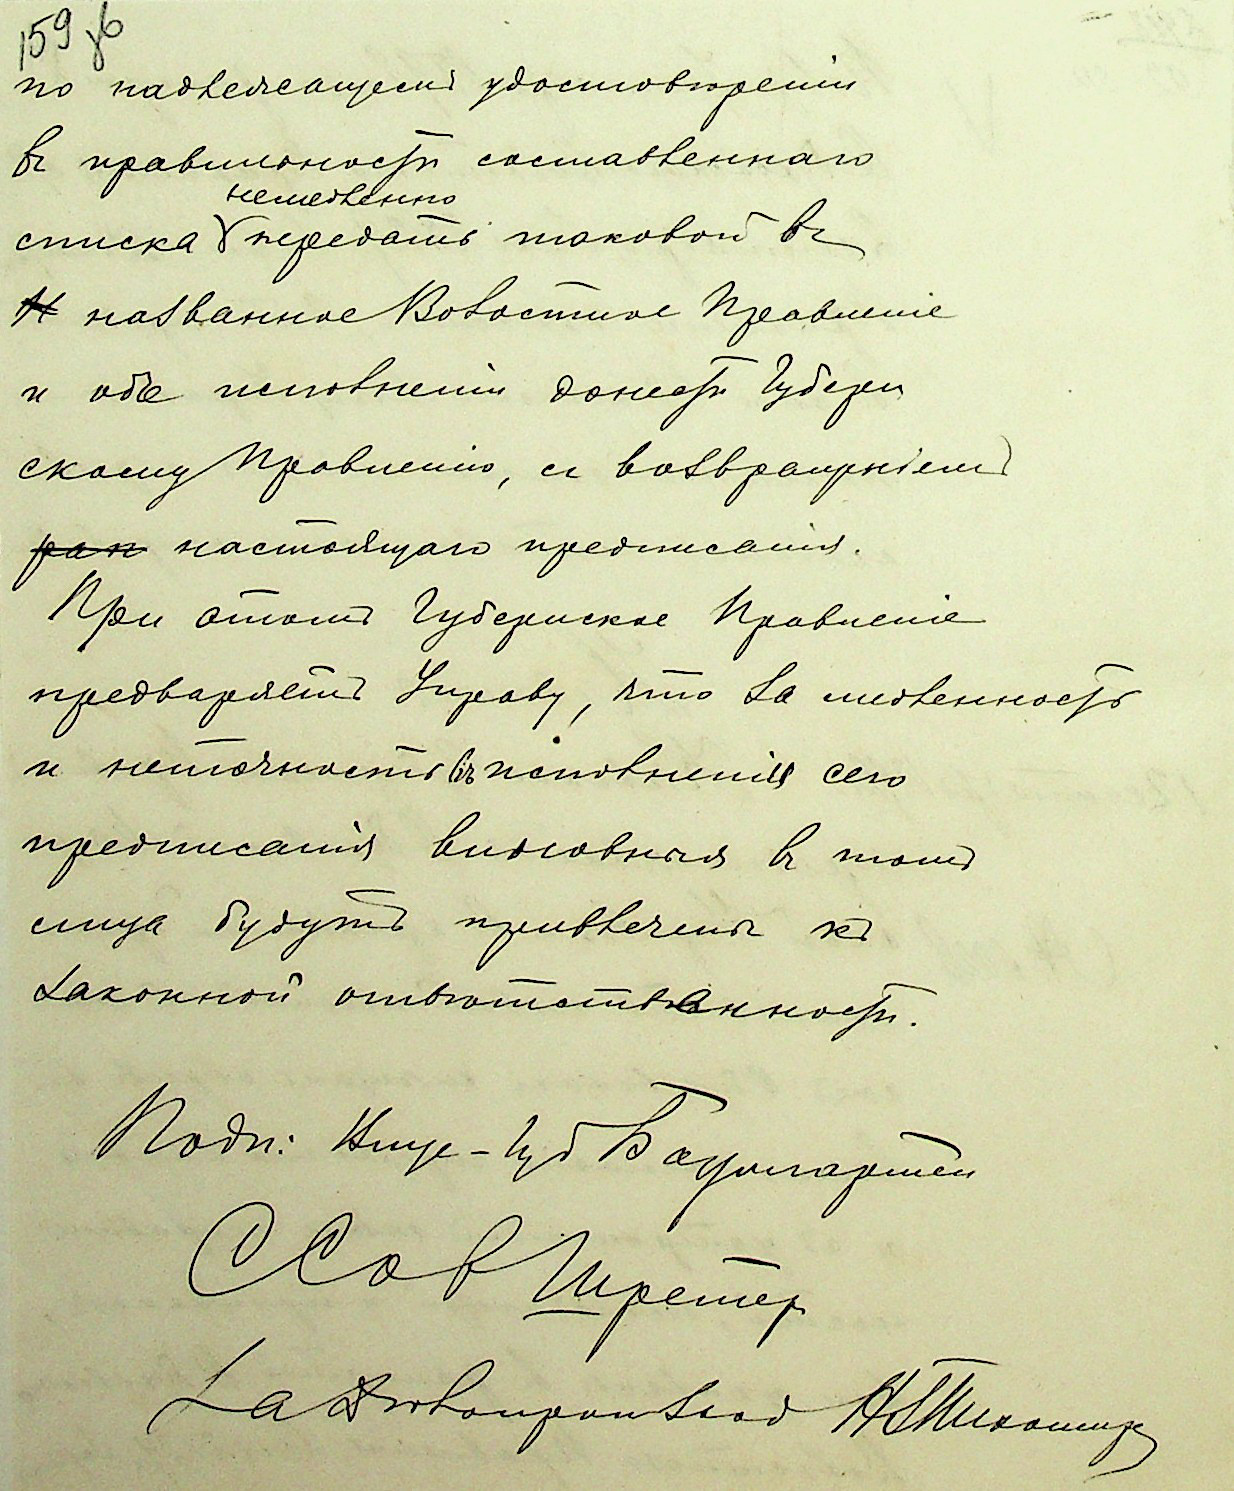 159 об
по надлежащемъ удостовѣреніи
въ правильности составленнаго
немедленно
списка передать таковой въ
Н названное Волостное Правленіе
и объ исполненіи донести Губерн
скому Правленію, съ возвращеніемъ
рап настоящаго предписанія.
При этомъ Губернское Правленіе
предваряетъ Управу, что за медленность
и неточность въ исполненія сего
предписанія виновныя въ томъ
лица будутъ привлечены къ
законной отвѣтственности.
Подп: Вице-Губ Баумгартен
С Сов Шретер
За Дѣлопроизвод